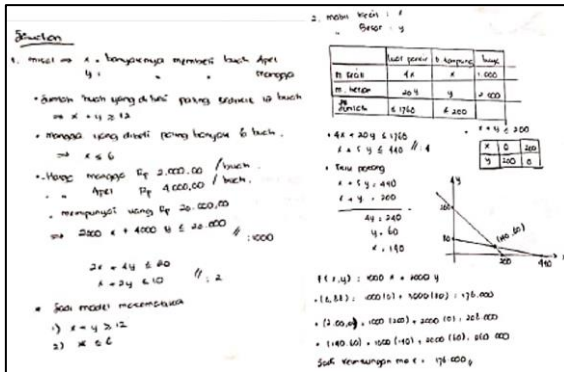 Jawaban
1. misal ⇒ x = banyaknya membeli buah Apel
y = " " Mangga
• Jumlah buah yang dibeli paling 12 buah
⇒ x + y ≥ 12
• mangga yang dibeli paling banyak 6 buah.
⇒ x ≤ 6
• Harga mangga Rp 2.000,00 / buah.
" Apel Rp 4,000,00 / buah.
• mempunyai uang Rp 20.000,00
⇒ 2000 x + 4000 y ≤ 20.000
// : 1000
2x + 4y ≤ 20
x + 2y ≤ 10 // : 2
* Jadi model matematika
1) x + y ≥ 12
2) x ≤ 6
2. mobil kecil : x
" Besar : y
luas parkir d. tampung biaya
m. kecil 4x x 1.000
m. besar 20 y y 2.000
Jumlah ≤ 1760 ≤ 200
• 4x + 20y ≤ 1760
x + 5y ≤ 440 // : 4
• x + y ≤ 200
x 0 200
y 200 0
• Titik potong
x + 5y = 440
x + y = 200
4y = 240
y = 60
x = 140
y
200
(140,60)
200 440
f(x,y) : 1000 x + 2000 y
• (0,88) : 1000 (0) + 2000 (88) : 176.000
• (200,0) = 1000 (200) + 2000 (0) :
• (140.60) = 1000 (140) + 2000 (60) : 260 000
Jadi keuntungan = 176.000,